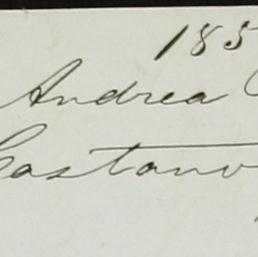 185
Andrea
Castano